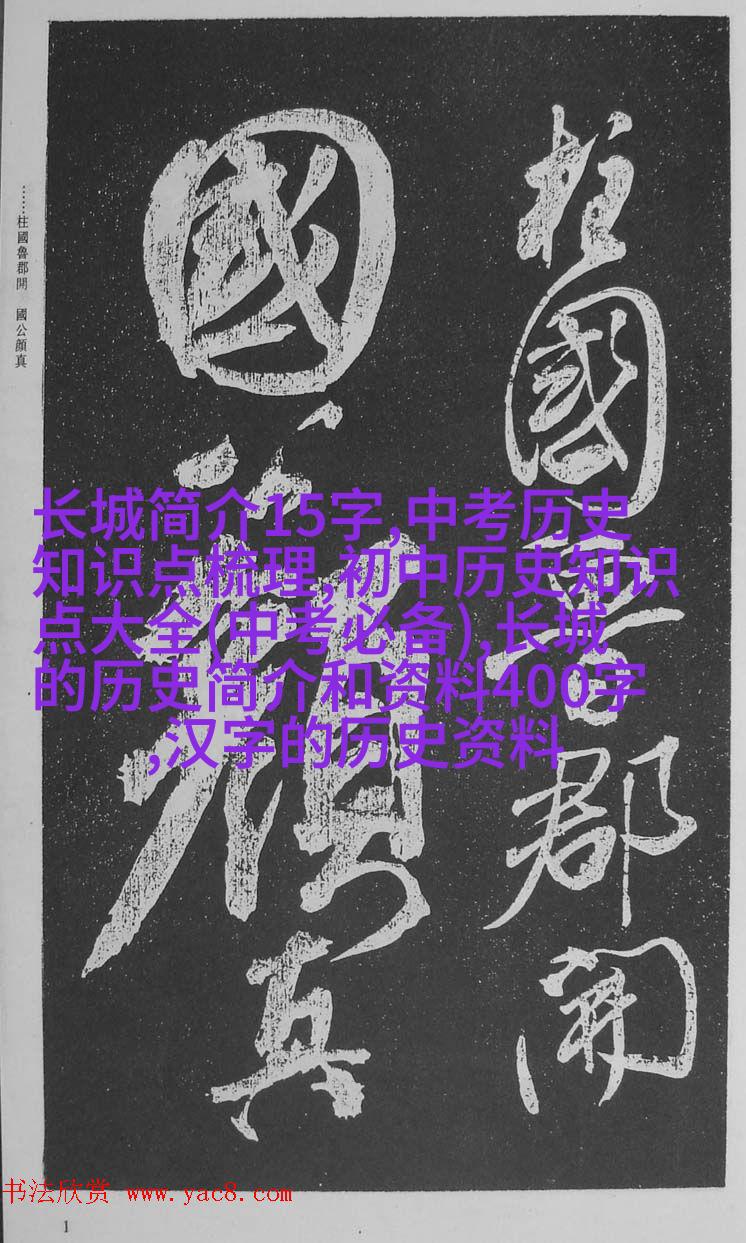 柱國魯郡開
國公顔真
……柱國魯郡開　國公顔真
长城简介15字,中考历史
知识点梳理,初中历史知识
点大全(中考必备),长城
的历史简介和资料400字
,汉字的历史资料
书法欣赏 www.yac8.com
1